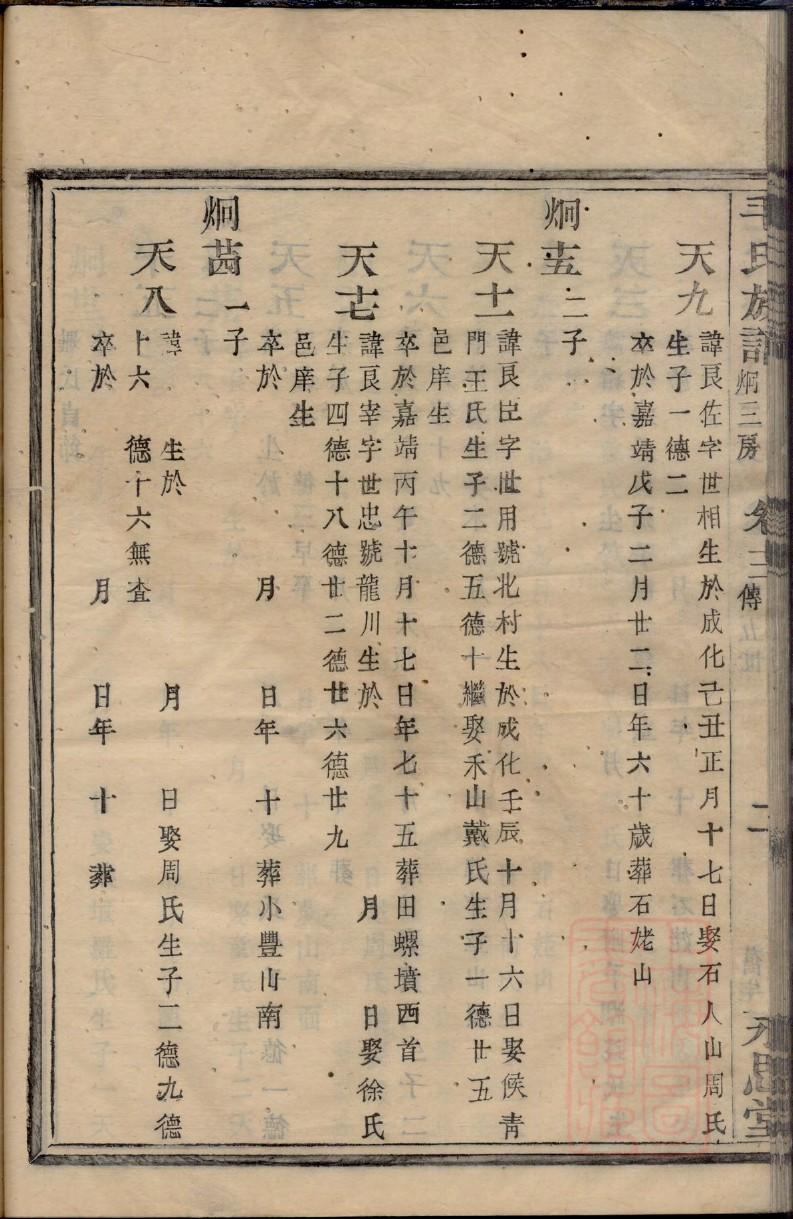 毛氏族譜 炯三房 卷三傳 二 永思堂
天九 諱良佐字世相生於成化己丑正月十七日娶石人山周氏
生子一德二
卒於嘉靖戊子二月廿二日年六十歲葬石姥山
炯 二子
天十一 諱良臣字世用號北村生於成化壬辰十月十六日娶候青
門王氏生子二德五德十繼娶禾山戴氏生子一德廿五
邑庠生
卒於嘉靖丙午十月十七日年七十五葬田螺墳西首
天十七 諱良宰字世忠號龍川生於 月 日娶徐氏
生子四德十八德廿二德廿六德廿九
邑庠生
卒於 月 日年 十葬小豐山南
炯 一子
天八 諱 生於 月 日娶周氏生子二德九德
十六 德十六無查
卒於 月 日年 十 葬